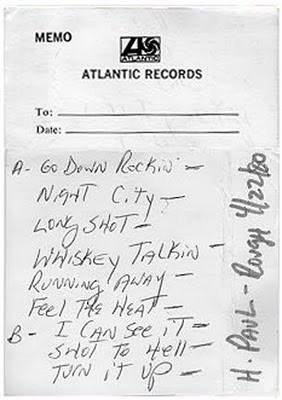 MEMO
ATLANTIC
ATLANTIC RECORDS
To:
Date:
A- GO DOWN ROCKIN' -
NIGHT CITY -
LONG SHOT -
WHISKEY TALKIN -
RUNNING AWAY -
FEEL THE HEAT -
B - I CAN SEE IT -
SHOT TO HELL -
TURN IT UP -
H. PAUL - ROUGH 4/22/80